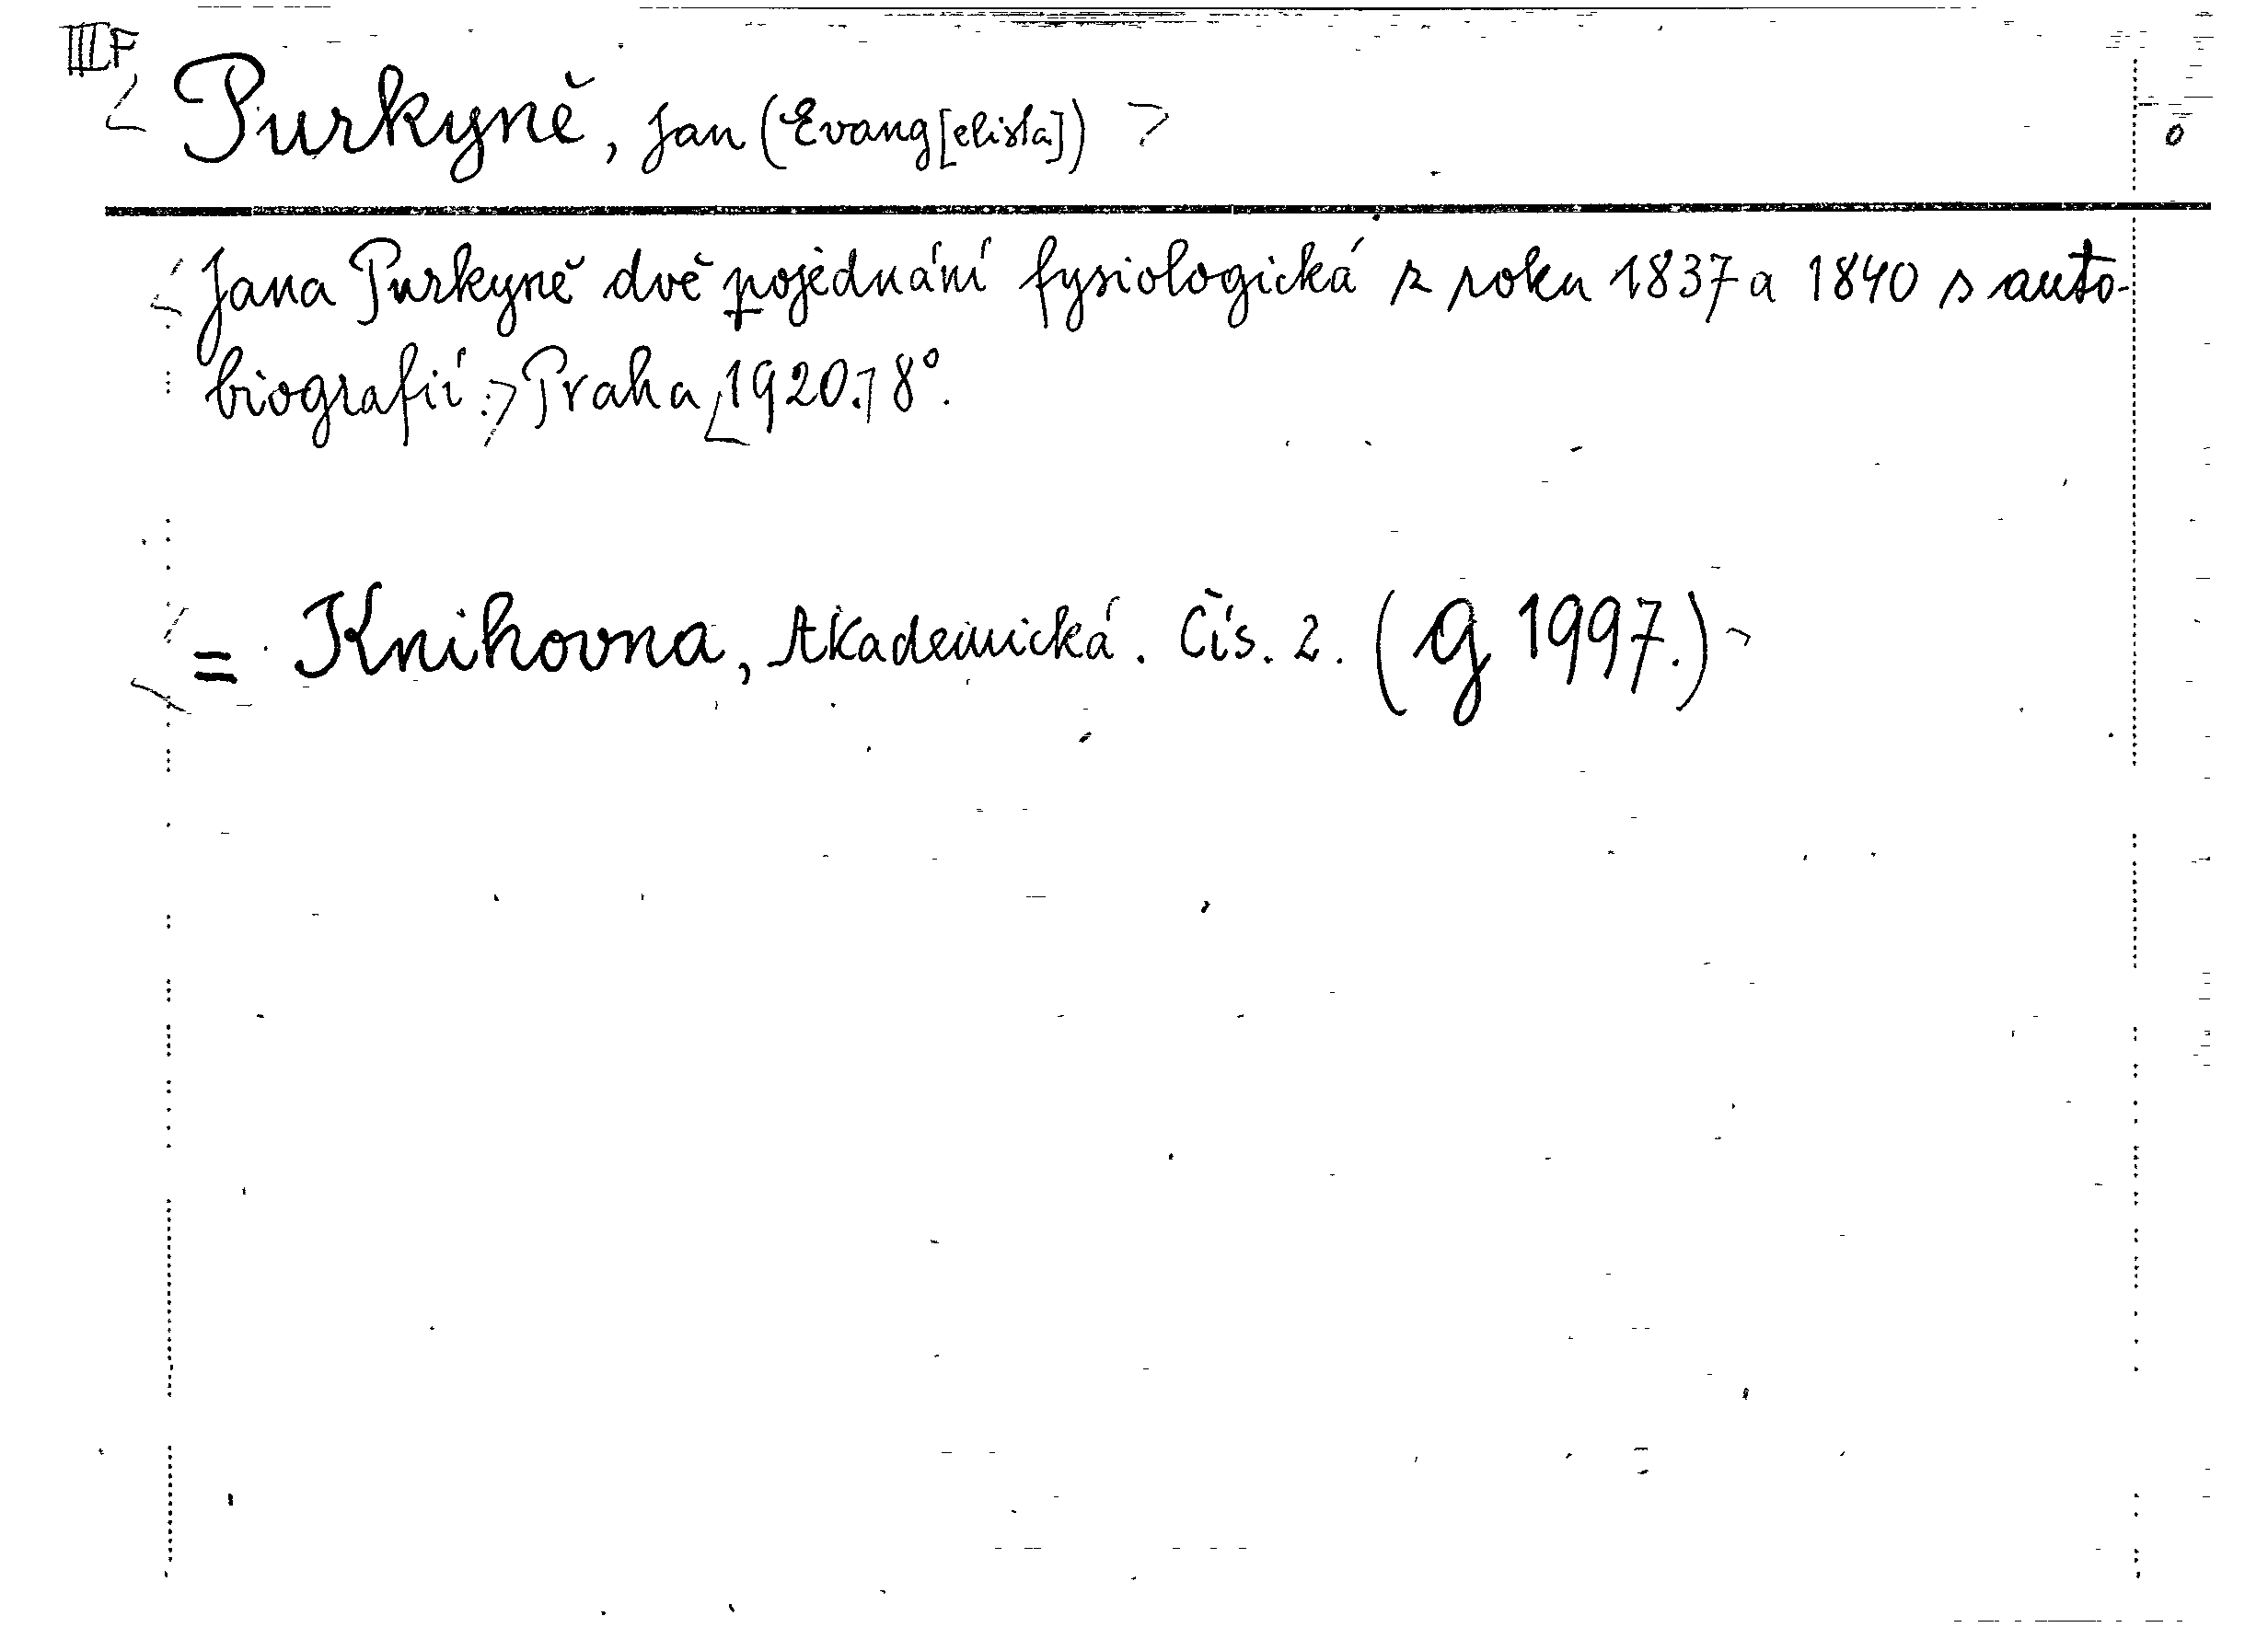 III F
<Purkyně, Jan (Evang[elista])>
o
<Jana Purkyně dvě pojednání fysiologická z roku 1837 a 1840 s auto-
biografií.> Praha <1920.> 8°.
<= Knihovna, Akademická. Čís. 2. (G 1997.)>